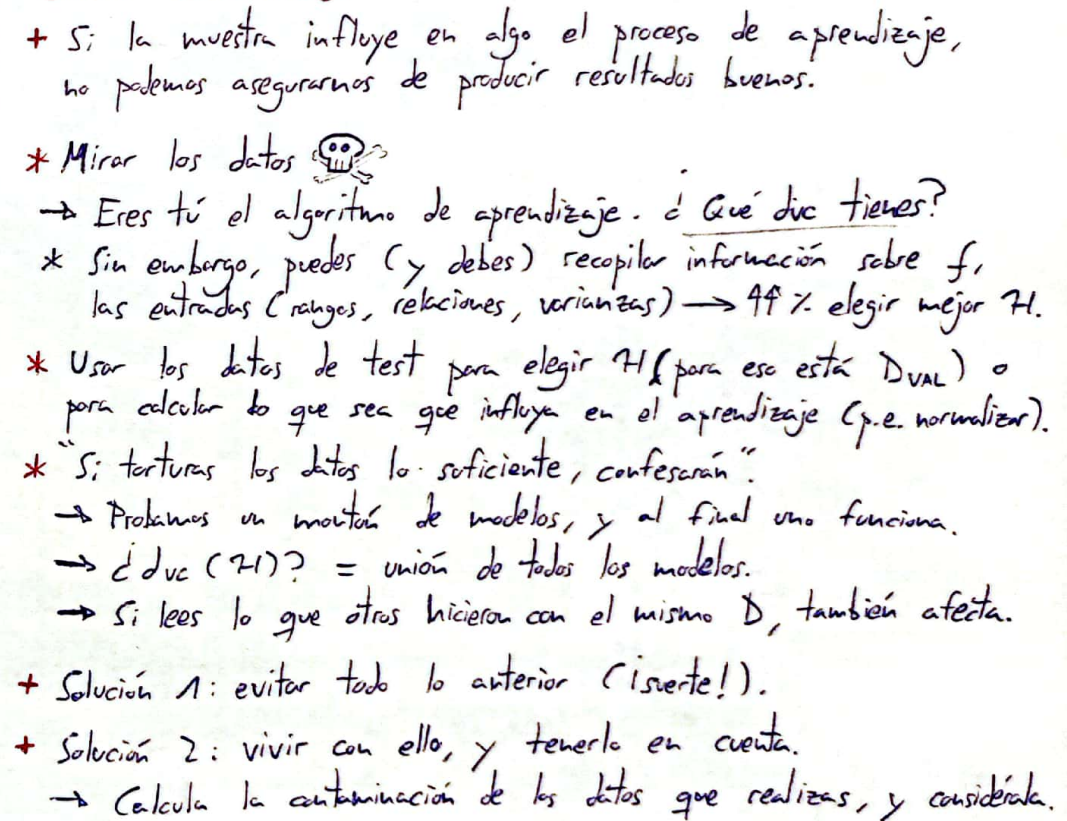 + Si la muestra influye en algo el proceso de aprendizaje,
no podemos asegurarnos de producir resultados buenos.
* Mirar los datos
→ Eres tú el algoritmo de aprendizaje. ¿Qué dvc tienes?
* Sin embargo, puedes (y debes) recopilar información sobre f,
las entradas (rangos, relaciones, varianzas) → elegir mejor H.
* Usar los datos de test para elegir H (para eso está DVAL) o
para calcular lo que sea que influya en el aprendizaje (p.e. normalizar).
* "Si torturas los datos lo suficiente, confesarán".
→ Probamos un montón de modelos, y al final uno funciona.
→ ¿dvc (H)? = unión de todos los modelos.
→ Si lees lo que otros hicieron con el mismo D, también afecta.
+ Solución 1: evitar todo lo anterior (¡suerte!).
+ Solución 2: vivir con ello, y tenerlo en cuenta.
→ Calcula la contaminación de los datos que realizas, y considérala.